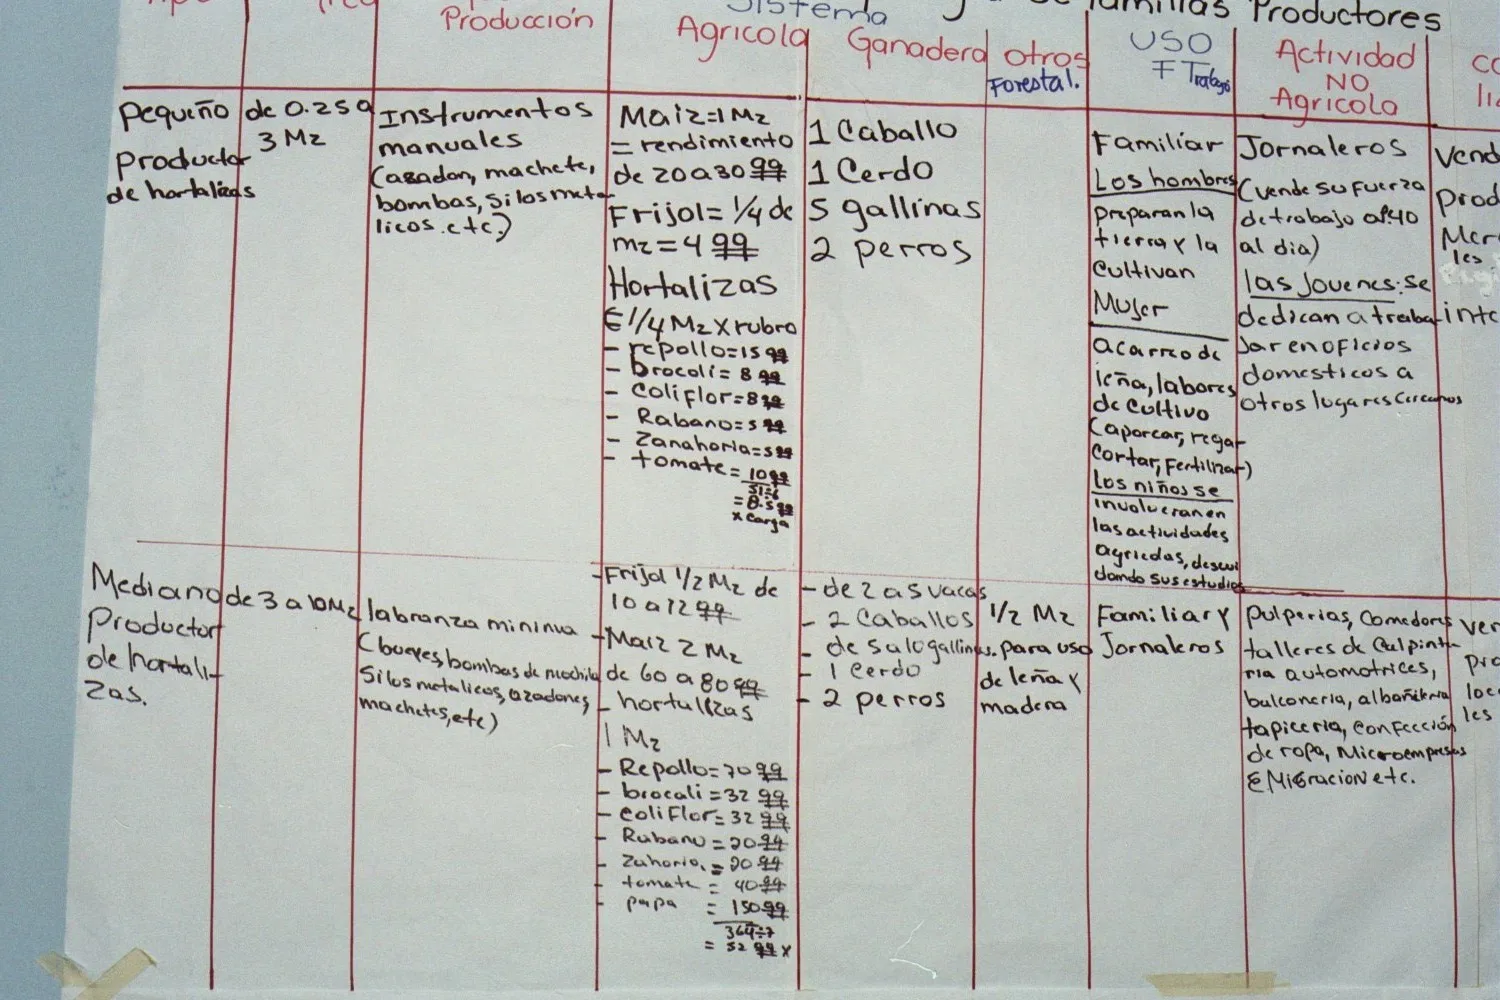 Sistema
familias Productores
Producción
Agricola
Ganadera
otros
Forestal.
USO
F Trabajo
Actividad
NO
Agricola
Pequeño
Productor
de hortalizas
de 0.25 a
3 Mz
Instrumentos
manuales
(azadon, machete,
bombas, silos meta-
licos. etc.)
Maiz=1 Mz
= rendimiento
de 20 a 30 qq
Frijol= 1/4 de
mz = 4 qq
Hortalizas
1/4 Mz x rubro
- repollo=15 qq
- brocoli= 8 qq
- Coliflor=8 qq
- Rabano=5 qq
- Zanahoria=5 qq
- tomate= 10 qq
51÷6
= 8.5 qq
x carga
1 Caballo
1 Cerdo
5 gallinas
2 perros
Familiar
Los hombres
preparan la
tierra y la
cultivan
Mujer
acarreo de
leña, labores
de cultivo
(aporcar, regar
cortar, Fertilizar)
Los niños se
involucran en
las actividades
agricolas, descui
dando sus estudios
Jornaleros
(vende su fuerza
de trabajo a 40
al dia)
las jovenes: se
dedican a traba-
jar en oficios
domesticos a
otros lugares cercanos
Mediano
Productor
de hortali-
zas.
de 3 a 10 Mz
labranza minima
(bueyes, bombas de mochila
Silos metalicos, azadones,
machetes, etc)
- Frijol 1/2 Mz de
10 a 12 qq
- Maiz 2 Mz
de 60 a 80 qq
- hortalizas
1 Mz
- Repollo= 70 qq
- brocali = 32 qq
- coliflor= 32 qq
- Rabano = 20 qq
- Zahoria = 20 qq
- tomate = 40 qq
- papa = 150 qq
364÷7
= 52 qq x
- de 2 a 5 vacas
- 2 Caballos
- de 5 a 10 gallinas.
- 1 cerdo
- 2 perros
1/2 Mz
para uso
de leña y
madera
Familiar y
Jornaleros
Pulperias, Comedores
talleres de Calpinte-
ria automotrices,
balconeria, albañileria
tapiceria, confección
de ropa, Microempresas
EMigracion etc.